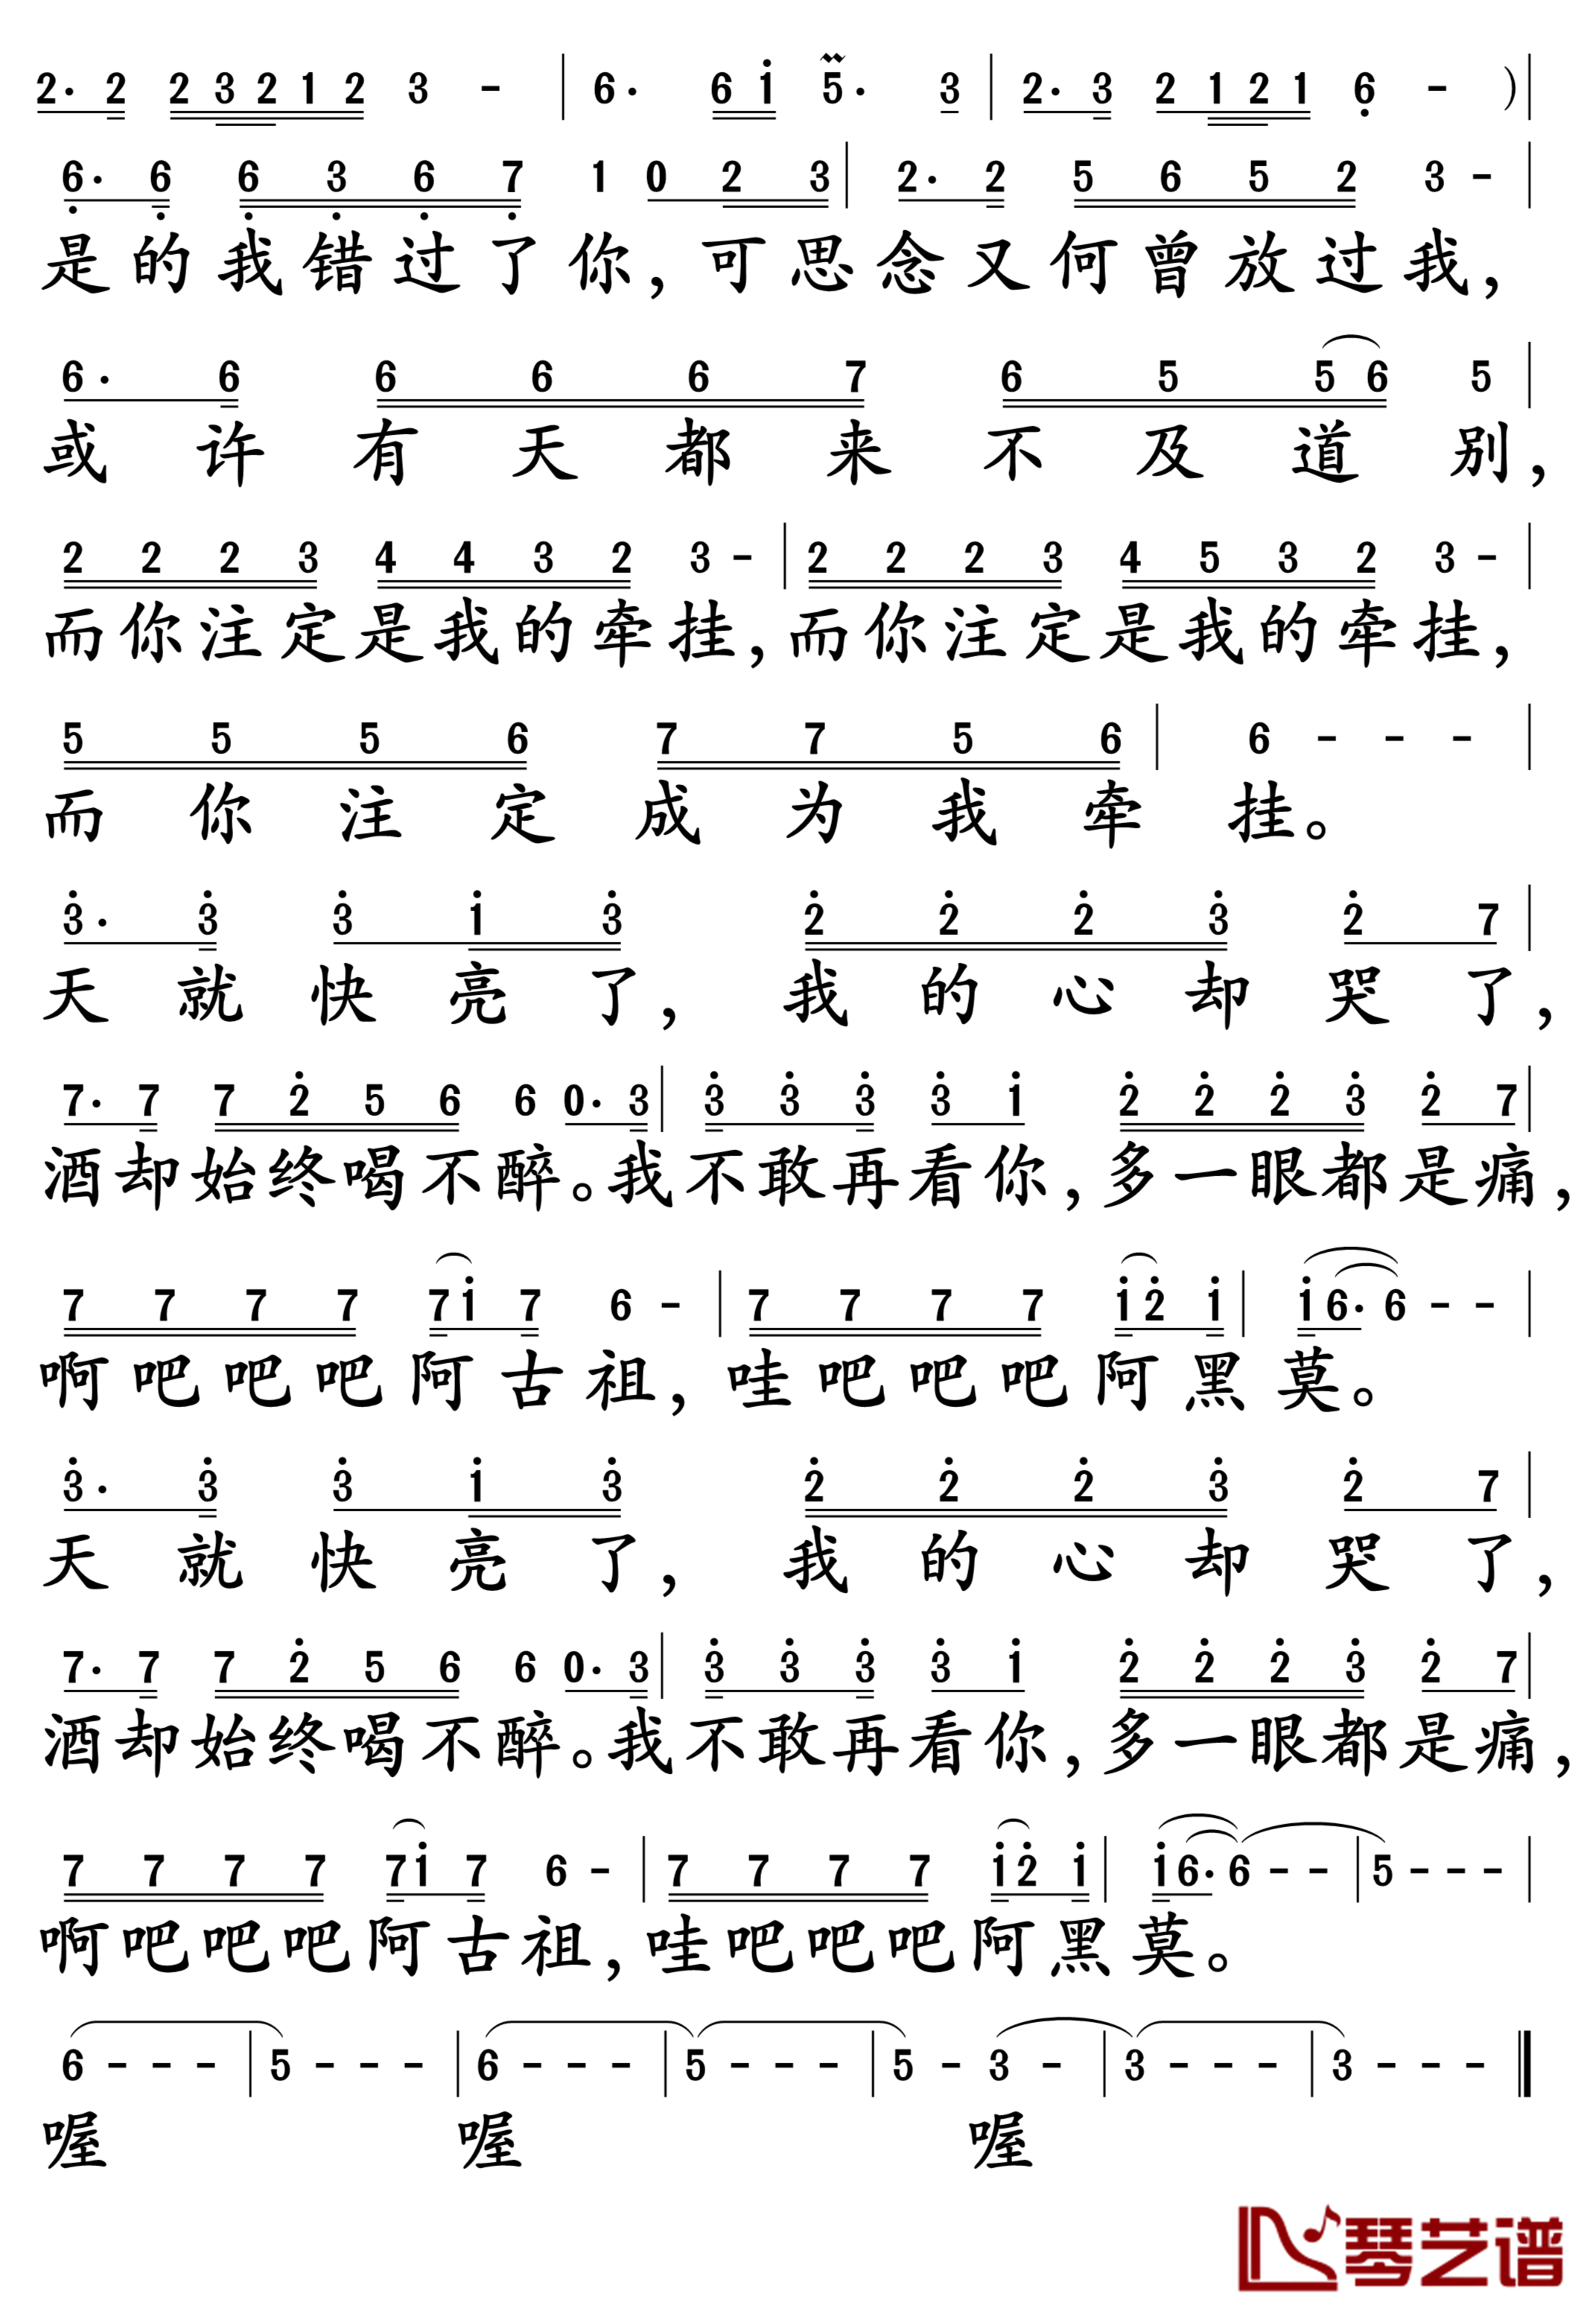 2· 2 2 3 2 1 2 3 - | 6· 6 1 5· 3 | 2· 3 2 1 2 1 6 - ) |
6· 6 6 3 6 7 1 0 2 3 | 2· 2 5 6 5 2 3 - |
是的我错过了你，可思念又何曾放过我，
6· 6 6 6 6 7 6 5 5 6 5 |
或许有天都来不及道别，
2 2 2 3 4 4 3 2 3 - | 2 2 2 3 4 5 3 2 3 - |
而你注定是我的牵挂，而你注定是我的牵挂，
5 5 5 6 7 7 5 6 | 6 - - - |
而你注定成为我牵挂。
3· 3 3 1 3 2 2 2 3 2 7 |
天就快亮了，我的心却哭了，
7· 7 7 2 5 6 6 0· 3 | 3 3 3 3 1 2 2 2 3 2 7 |
酒却始终喝不醉。我不敢再看你，多一眼都是痛，
7 7 7 7 7 1 7 6 - | 7 7 7 7 1 2 1 | 1 6· 6 - - |
啊吧吧吧阿古祖，哇吧吧吧阿黑莫。
3· 3 3 1 3 2 2 2 3 2 7 |
天就快亮了，我的心却哭了，
7· 7 7 2 5 6 6 0· 3 | 3 3 3 3 1 2 2 2 3 2 7 |
酒却始终喝不醉。我不敢再看你，多一眼都是痛，
7 7 7 7 7 1 7 6 - | 7 7 7 7 1 2 1 | 1 6· 6 - - | 5 - - - |
啊吧吧吧阿古祖，哇吧吧吧阿黑莫。
6 - - - | 5 - - - | 6 - - - | 5 - - - | 5 - 3 - | 3 - - - | 3 - - - ‖
喔 喔 喔
琴艺谱